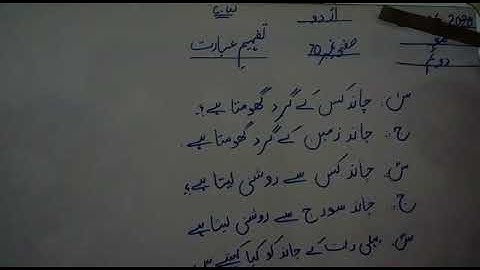 اردو
صفحہ نمبر 70
تفہیمِ عبارت
دوئم
س: چاند کس کے گرد گھومتا ہے؟
ج: چاند زمین کے گرد گھومتا ہے۔
س: چاند کس سے روشنی لیتا ہے؟
ج: چاند سورج سے روشنی لیتا ہے
س: پہلی رات کے چاند کو کیا کہتے ہیں